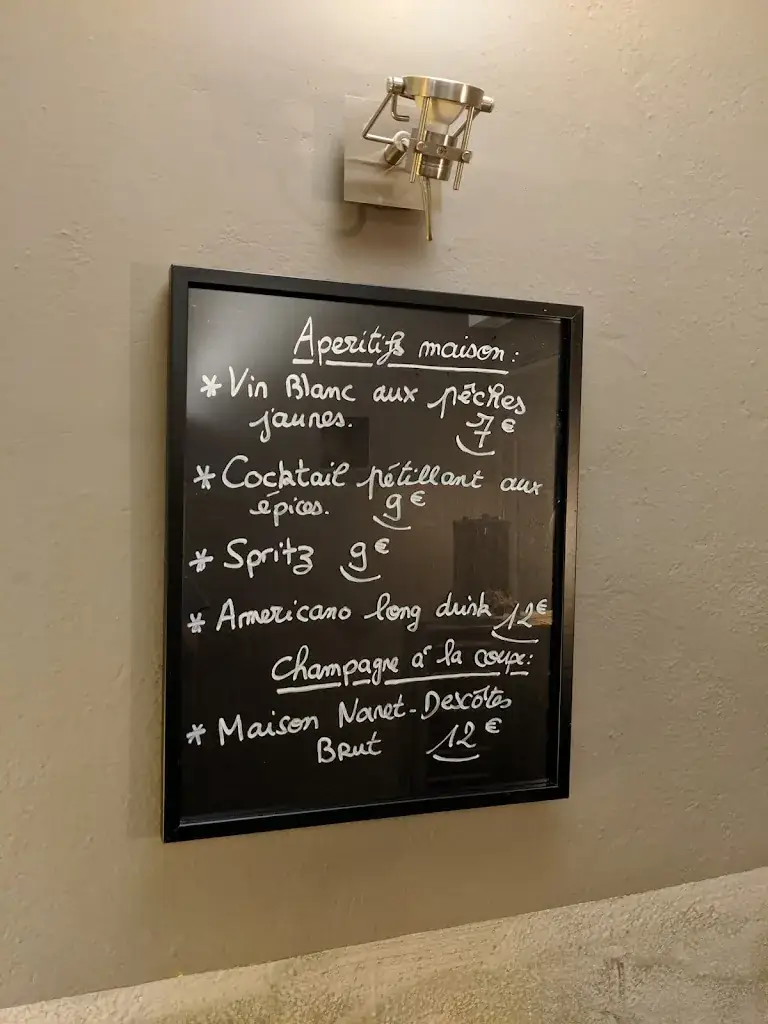 Aperitifs maison :
* Vin Blanc aux pêches
jaunes. 7€
* Cocktail pétillant aux
épices. 9€
* Spritz 9€
* Americano long drink 12€
Champagne à la coupe :
* Maison Nanet-Descôtes
Brut 12€